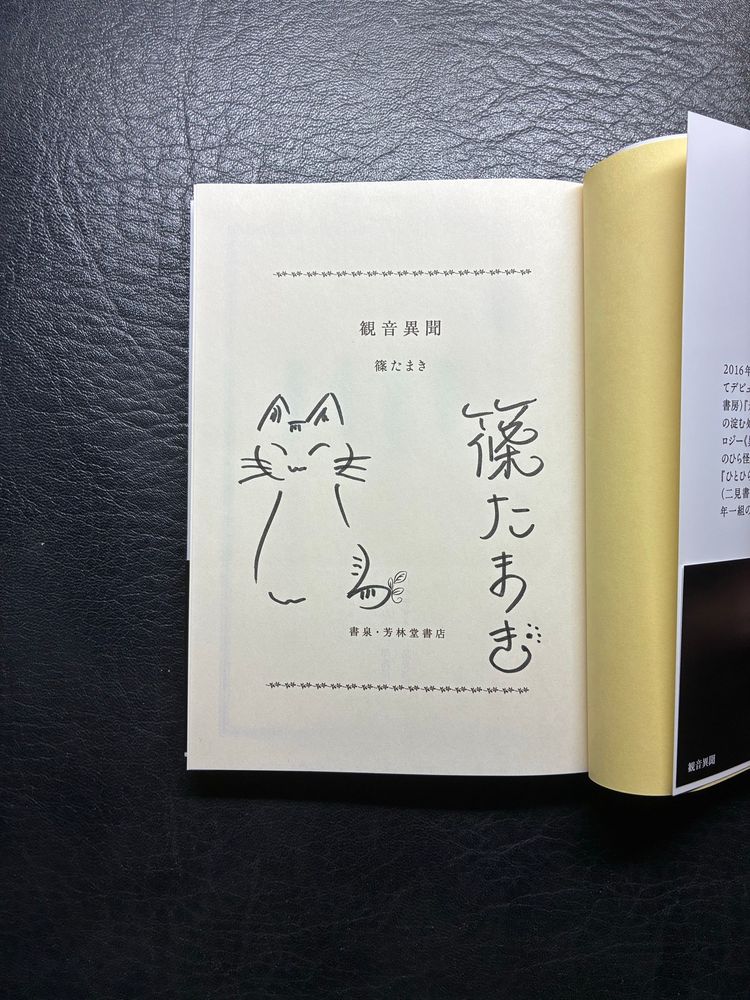 観音異聞
篠たまき
篠たまき
書泉・芳林堂書店
2016年
てデビュ
書房)『
の淀む
ロジー《
のひら怪
『ひとひら
(二見書
年一組の
観音異聞